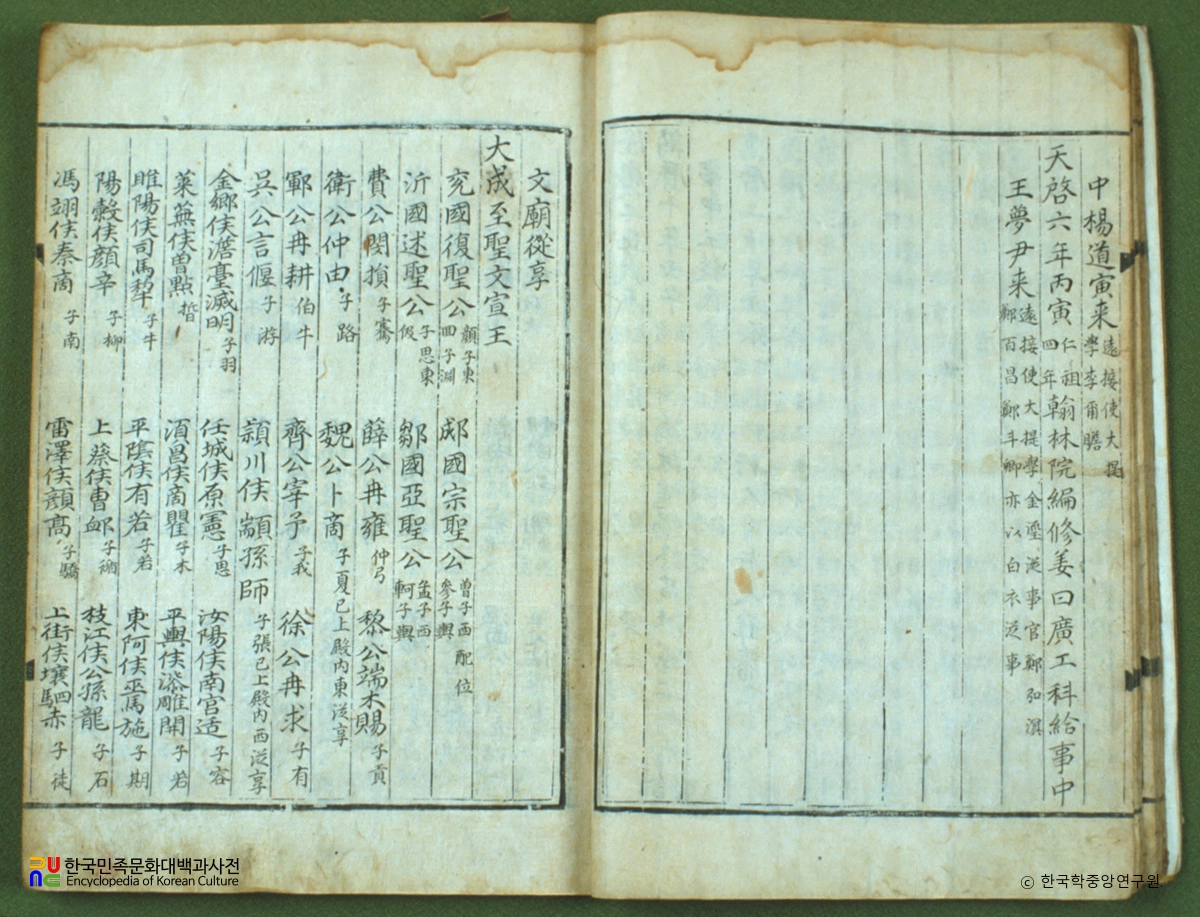 中楊道寅来遠接使大提
學李爾瞻
天啓六年丙寅仁祖四年翰林院編修姜曰廣工科給事中
王夢尹来遠接使大提學金瑬從事官鄭弘溟
鄭百昌鄭斗卿亦以白衣從事
文廟從享
大成至聖文宣王
兖國復聖公顔子東回子淵 郕國宗聖公曾子西參子輿配位
沂國述聖公子思東伋 鄒國亞聖公孟子西軻子輿
費公閔損子騫 薛公冉雍仲弓 黎公端木賜子貢
衛公仲由子路 魏公卜商子夏已上殿內東從享
鄆公冉耕伯牛 齊公宰予子我 徐公冉求子有
吳公言偃子游 潁川侯顓孫師子張已上殿內西從享
金鄉侯澹臺滅明子羽 任城侯原憲子思 汝陽侯南宮适子容
萊蕪侯曾點晳 湏昌侯商瞿子木 平輿侯漆雕開子若
睢陽侯司馬犂子牛 平陰侯有若子若 東阿侯巫馬施子期
陽穀侯顔辛子柳 上蔡侯曹卹子循 枝江侯公孫龍子石
馮翊侯秦商子南 雷澤侯顔高子驕 上街侯壤駟赤子徒
한국민족문화대백과사전
Encyclopedia of Korean Culture
© 한국학중앙연구원